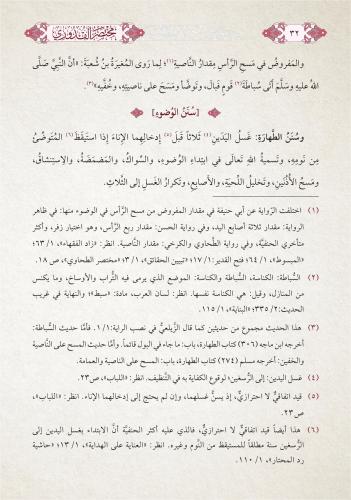 ٣٢
مختصر القدوري
والمَفروضُ في مَسحِ الرَّأسِ مِقدارُ النَّاصيةِ(١)؛ لِما رَوى المُغيرَةُ بنُ شُعبةَ: «أنَّ النَّبيَّ صَلَّى
اللهُ عليهِ وسَلَّمَ أتَى سُباطَةَ(٢) قَومٍ فَبالَ، وتَوضَّأَ ومَسحَ على ناصيتِهِ، وخُفَّيهِ»(٣).
[سُنَنُ الوُضوءِ]
وسُنَنُ الطَّهارَةِ: غَسلُ اليَدَينِ(٤) ثَلاثاً قَبلَ(٥) إدخالِهِما الإناءَ إذا استَيقَظَ(٦) المُتَوضِّئُ
مِن نَومِهِ، وتَسميةُ اللهِ تَعالَى في ابتِداءِ الوُضوءِ، والسِّواكُ، والمَضمَضَةُ، والاستِنشاقُ،
ومَسحُ الأُذُنَينِ، وتَخليلُ اللِّحيَةِ، والأصابِعِ، وتَكرارُ الغَسلِ إلى الثَّلاثِ.
(١) اختلفت الرّواية عن أبي حنيفة في مقدار المفروض من مسح الرَّأس في الوضوء منها: في ظاهر
الرواية: مقدار ثلاثة أصابع اليد، وفي رواية الحسن: مقدار ربع الرَّأس، وهو اختيار زفر، وأكثر
متأخّري الحنفيَّة، وفي رواية الطَّحاوي والكرخي: مقدار النَّاصية. انظر: «زاد الفقهاء»، ١/ ٦٣؛
«المبسوط»، ١/ ٦٤؛ فتح القدير: ١/ ١٧؛ «تبيين الحقائق»، ١/ ٣؛ «مختصر الطحاوي»، ص ١٨.
(٢) السُّباطة: الكناسة، السُّباطة والكناسة: الموضع الذي يرمى فيه التُّراب والأوساخ، وما يكنس
من المنازل، وقيل: هي الكناسة نفسها. انظر: لسان العرب، مادة: «سبط»؛ والنهاية في غريب
الحديث: ٢/ ٣٣٥؛ «البناية»، ١/ ١١٥.
(٣) هذا الحديث مجموع من حديثين كما قال الزَّيلعيُّ في نصب الراية: ١/ ١. فأمَّا حديث السُّباطة:
أخرجه ابن ماجه (٣٠٦) كتاب الطهارة، باب: ما جاء في البول قائماً. وأمَّا حديث المسح على النَّاصية
والخفين: أخرجه مسلم (٢٧٤) كتاب الطهارة، باب: المسح على الناصية والعمامة.
(٤) غسل اليدين: إلى الرُّسغين؛ لوقوع الكفاية به في التَّنظيف. انظر: «اللباب»، ص٢٣.
(٥) قيد اتفاقيٌّ لا احترازيٌّ، إذ يسنُّ غسلهما، وإن لم يحتج إلى إدخالهما الإناء. انظر: «اللباب»،
ص٢٣.
(٦) هذا أيضاً قيد اتفاقيٌّ لا احترازيٌّ، فالذي عليه أكثر الحنفيَّة أنَّ الابتداء بغسل اليدين إلى
الرُّسغين سنة مطلقاً للمستيقظ من النَّوم وغيره. انظر: «العناية على الهداية»، ١/ ١٣؛ «حاشية
رد المحتار»، ١/ ١١٠.